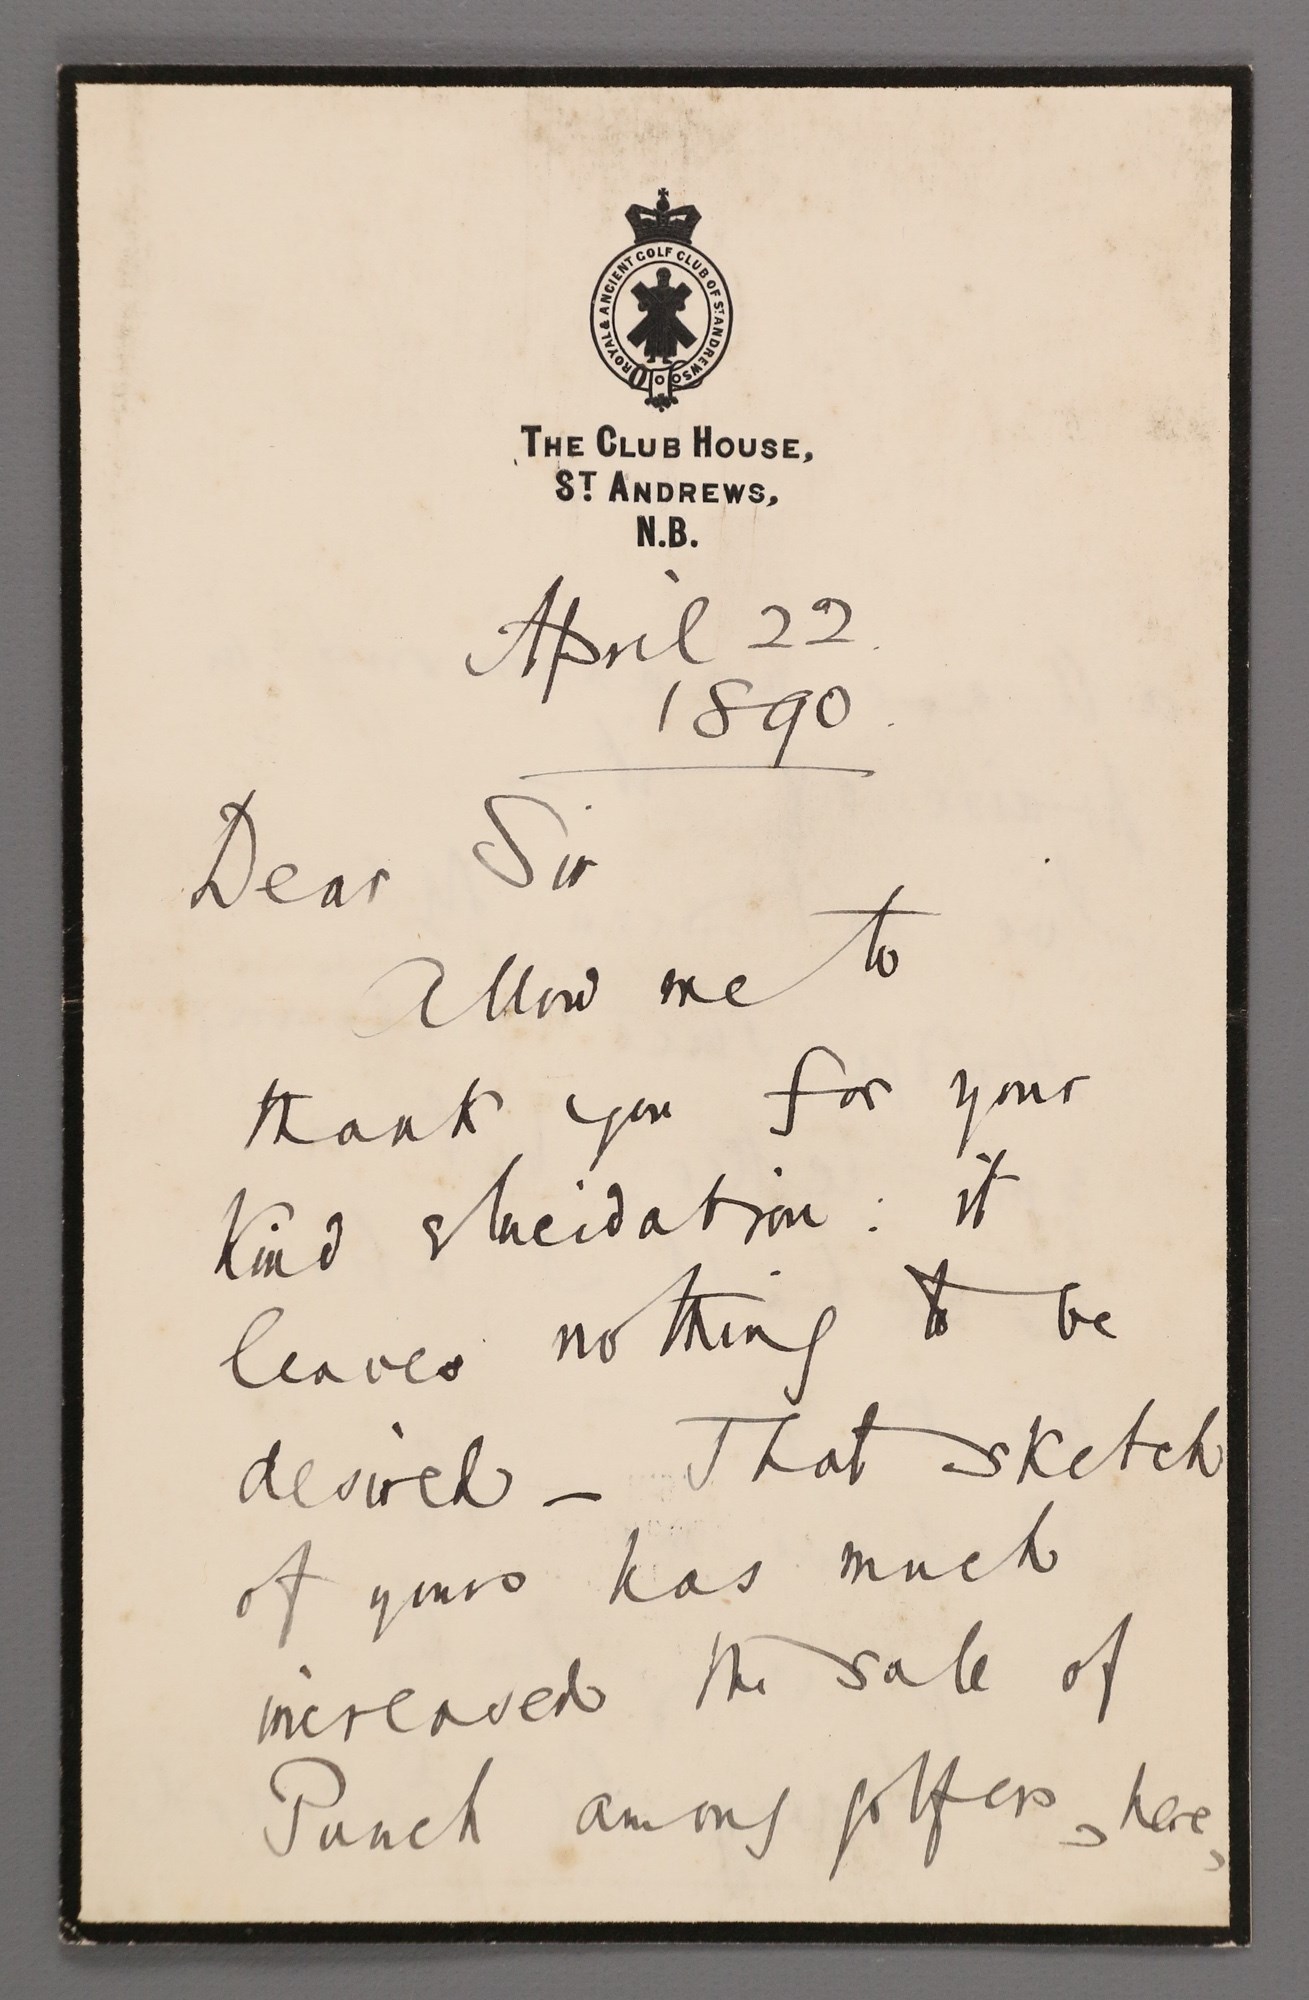 ROYAL & ANCIENT GOLF CLUB OF ST ANDREWS
THE CLUB HOUSE,
ST. ANDREWS,
N.B.
April 22.
1890.
Dear Sir
Allow me to
thank you for your
kind elucidation : it
leaves nothing to be
desired – That sketch
of yours has much
increased the sale of
Punch among golfers, here,